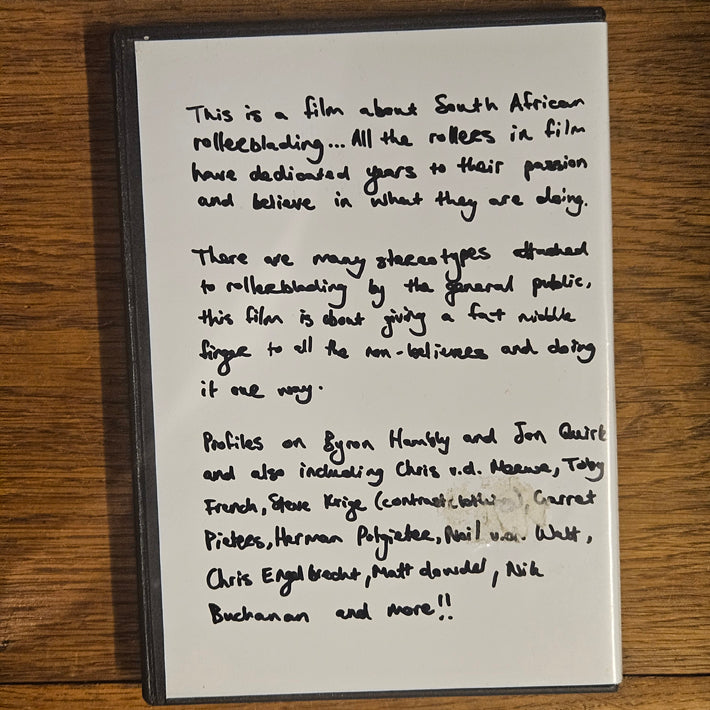 This is a film about South African
rollerblading... All the rollers in film
have dedicated years to their passion
and believe in what they are doing.
There are many stereotypes attached
to rollerblading by the general public,
this film is about giving a fat middle
finger to all the non-believers and doing
it our way.
Profiles on Byron Hambly and Jon Quirk
and also including Chris v.d. Merwe, Toby
French, Steve Krige (contrast clothing), Garret
Pieters, Herman Potgieter, Neil v.d. Watt,
Chris Engelbrecht, Matt, Nik
Buchanan and more!!